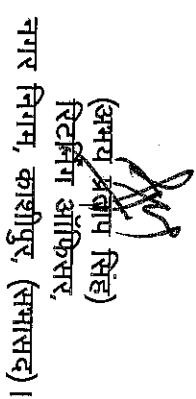 (अभय प्रताप सिंह)
रिटर्निंग ऑफिसर,
नगर निगम, काशीपुर, (सभासद)।